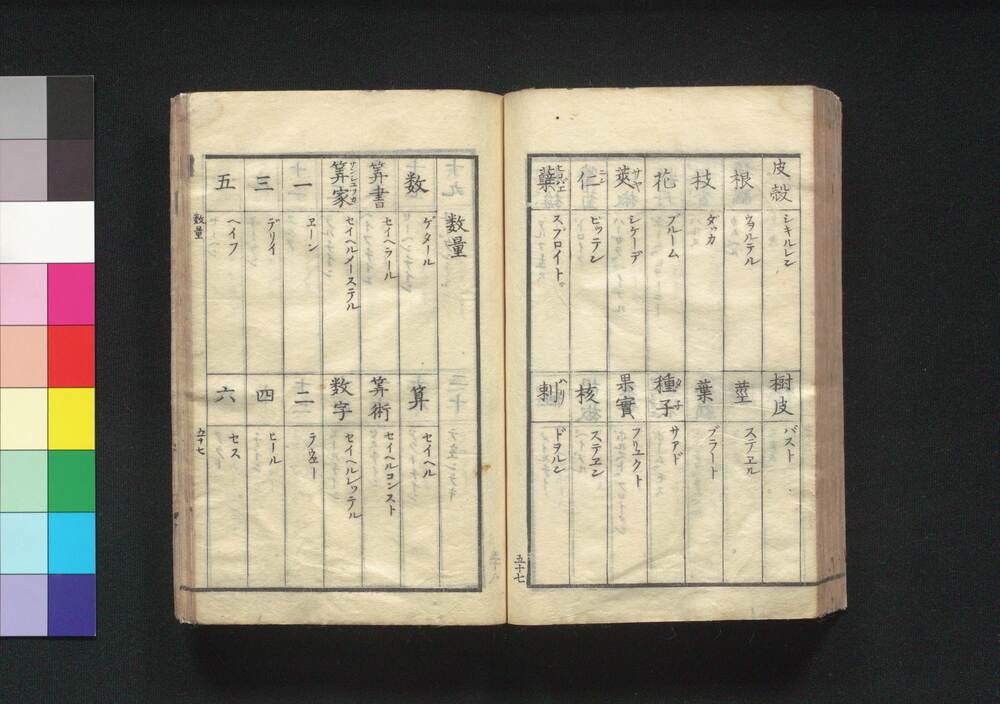 皮殻
シキルレン
樹皮
バスト
根
ウヲルテル
莖
ステヱル
枝
ダッカ
葉
ブラート
花
ブルーム
種子
タ子
サアド
莢
サヤ
シケーデ
果實
フリュクト
仁
ニン
ピッテン
核
ステヱン
スプロイト。
刺
ハリ
ドヲルン
五十七
数量
数
ゲタール
算
セイヘル
算書
セイヘラール
算術
セイヘルコンスト
算家
セイヘルメーステル
数字
セイヘルレッテル
一
ヱーン
二
三
デリイ
四
ヒール
五
ヘイフ
六
セス
数量
五十七